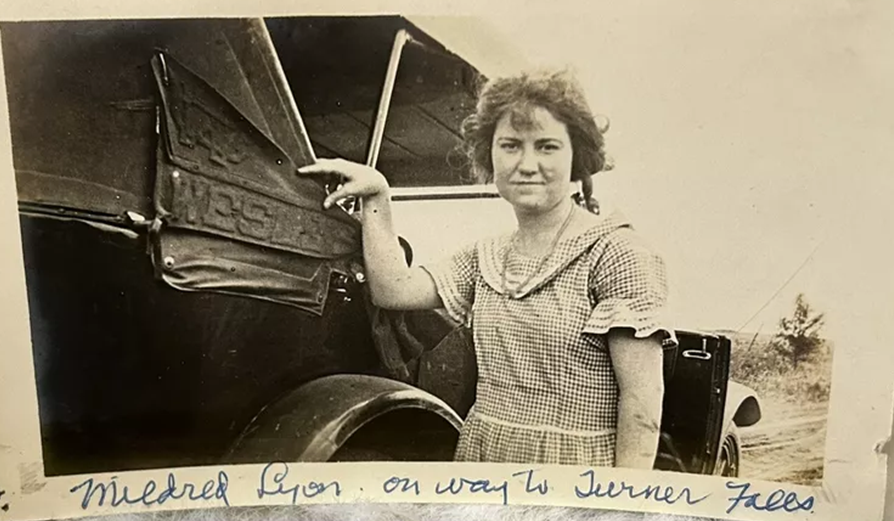 WES
Mildred Lyon. on way to Turner Falls